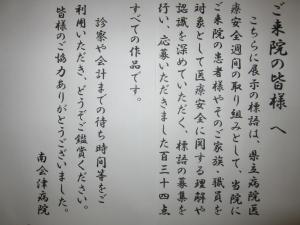 ご来院の皆様へ
こちらに展示の標語は、県立病院医
療安全週間の取り組みとして、当院に
ご来院の患者様やそのご家族・職員を
対象として医療安全に関する理解や
認識を深めていただく、標語の募集を
行い、応募いただきました百三十四点
すべての作品です。
診察や会計までの待ち時間等をご
利用いただき、どうぞご鑑賞ください。
皆様のご協力ありがとうございました。
南会津病院